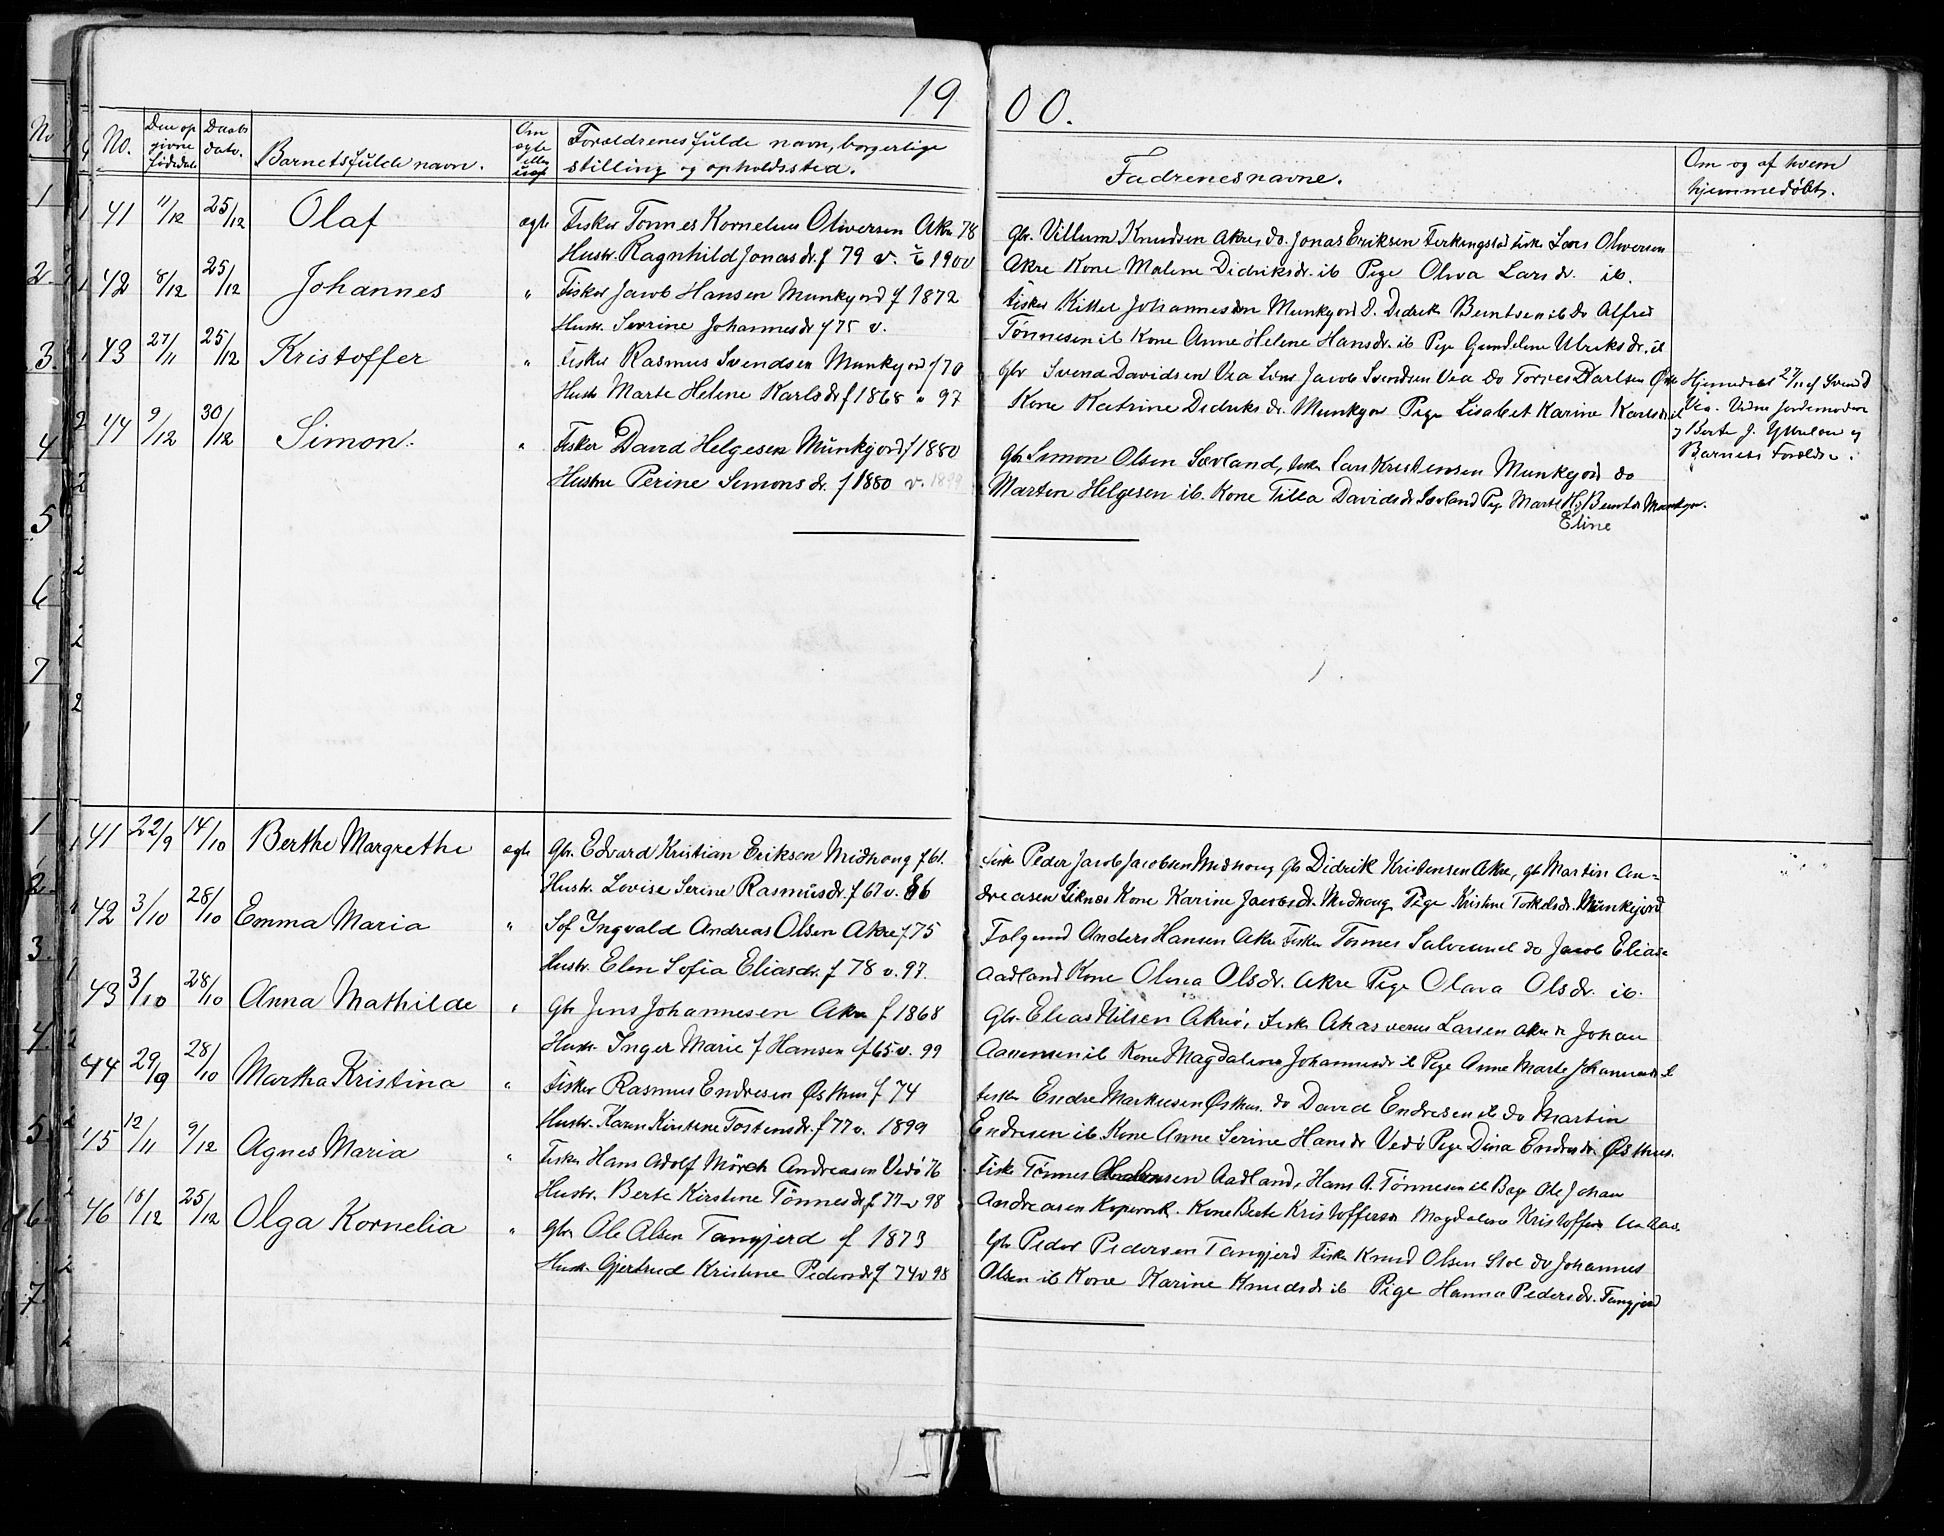 19 00.
No. Den opgivne fødedato Daabsdato. Barnets fulde navn. Om ægte eller uægte Forældrenes fulde navn, borgerlige stilling og opholdssted. Fadrenes navne. Om og af hvem hjemmedøbt.
41 11/12 25/12 Olaf ægte Fisker Tønnes Kornelius Oliversen Akre 78
Hustr. Ragnhild Jonasdr. f 79 v. 1900
Gbr. Villum Knudsen Akre, do. Jonas Eriksen Ferkingstad Fisk Lars Oliversen
Akre Kone Malene Didriksdr. ib Pige Oliva Larsdr. ib.
42 8/12 25/12 Johannes " Fisker Jacob Hansen Munkejord f 1872
Hustr. Serine Johannesdr f 75 v.
Fisker Kittel Johannessen Munkejord D. Didrik Berntsen ib do Alfred
Tønnesen ib Kone Anne Helene Hansdr. ib Pige Gundeline Ulriksdr. ib
43 27/11 25/12 Kristoffer " Fisker Rasmus Svendsen Munkejord f 70
Hustr Marte Helene Karlsdr f 1868 " 97
Gbr Svend Davidsen Vea Jacob Svendsen Vea do Torres Karlsen
Kone Katrine Didriksdr. Munkejor Pige Lisabet Karine Karlsdr ib
Hjemmedøbt 27/11 af Svend
Vea. Vidne Jordemoder
Berte J. og
Barnets Forældre.
44 9/12 30/12 Simon. " Fisker David Helgesen Munkejord f 1880
Hustru Perine Simonsdr. f 1880 v. 1899
Gbr Simon Olsen Sævland, Fisk Lars Kristensen Munkejord do
Marten Helgesen ib. Kone Tilla Davidsdr Sævland Pige Marte H. Berntsdr Munkejor.
Eline
41 22/9 14/10 Berthe Margrethe ægte Gbr. Edvard Kristian Eriksen Midhoug f 61.
Hustr. Lovise Serine Rasmusdr. f 67 v. 86
Fisk Peder Jacob Jacobsen Midhoug Gb Didrik Kristensen Akre, gb Martin An-
dreasen Liknes Kone Karine Jacobsdr. Midhoug Pige Kristine Torkelsdr. Munkejord
42 3/10 28/10 Emma Maria " Sof Ingvald Andreas Olsen Akre f 75
Hustr. Elen Sofia Eliasdr. f 78 v. 97.
Folgemd Anders Hansen Akre Fisker Tønnes Salvesen ib do Jacob Elias
Aadland Kone Olina Olsdr. Akre Pige Olava Olsdr. ib.
43 3/10 28/10 Anna Mathilde " Gbr Jens Johannesen Akre f 1868
Hustr. Inger Marie f Hansen f 65 v. 99
Gbr. Elias Nilsen Akre, Fisk Ahasverus Larsen Akre Johan
Aanensen ib Kone Magdalene Johannesdr ib Pige Anne Marte Johannesdr ib
44 29/9 28/10 Martha Kristina " Fisker Rasmus Endresen Østhus f 74
Hustr. Karen Kirstine Tostensdr. f 77 v. 1899
Fisker Endre Markusen Østhus. do David Endresen ib do Martin
Endresen ib Kone Anne Serine Hansdr Vedø Pige Dina Endresdr Østhus.
45 12/11 9/12 Agnes Maria " Fisker Hans Adolf Mörch Andreasen Vedø 76
Hustr. Berte Kirstine Tønnesdr f 77 v 98
Fisk Tønnes Aadland, Hans A. Tønnesen ib Ole Johan
Andreasen Kopervik. Kone Berte Kristoffersen Magdalene Kristoffers
46 10/12 25/12 Olga Kornelia " Gbr Ole Olsen Tangjerd f 1873
Hustr. Gjertrud Kristine Pedersdr f 74 v 98
Gbr Peder Pedersen Tangjerd Fisk Knud Olsen Stoe do Johannes
Olsen ib Kone Karine Knudsdr ib Pige Hanna Pedersdr. Tangjerd